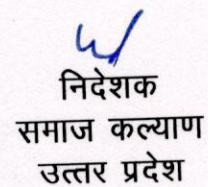 निदेशक
समाज कल्याण
उत्तर प्रदेश